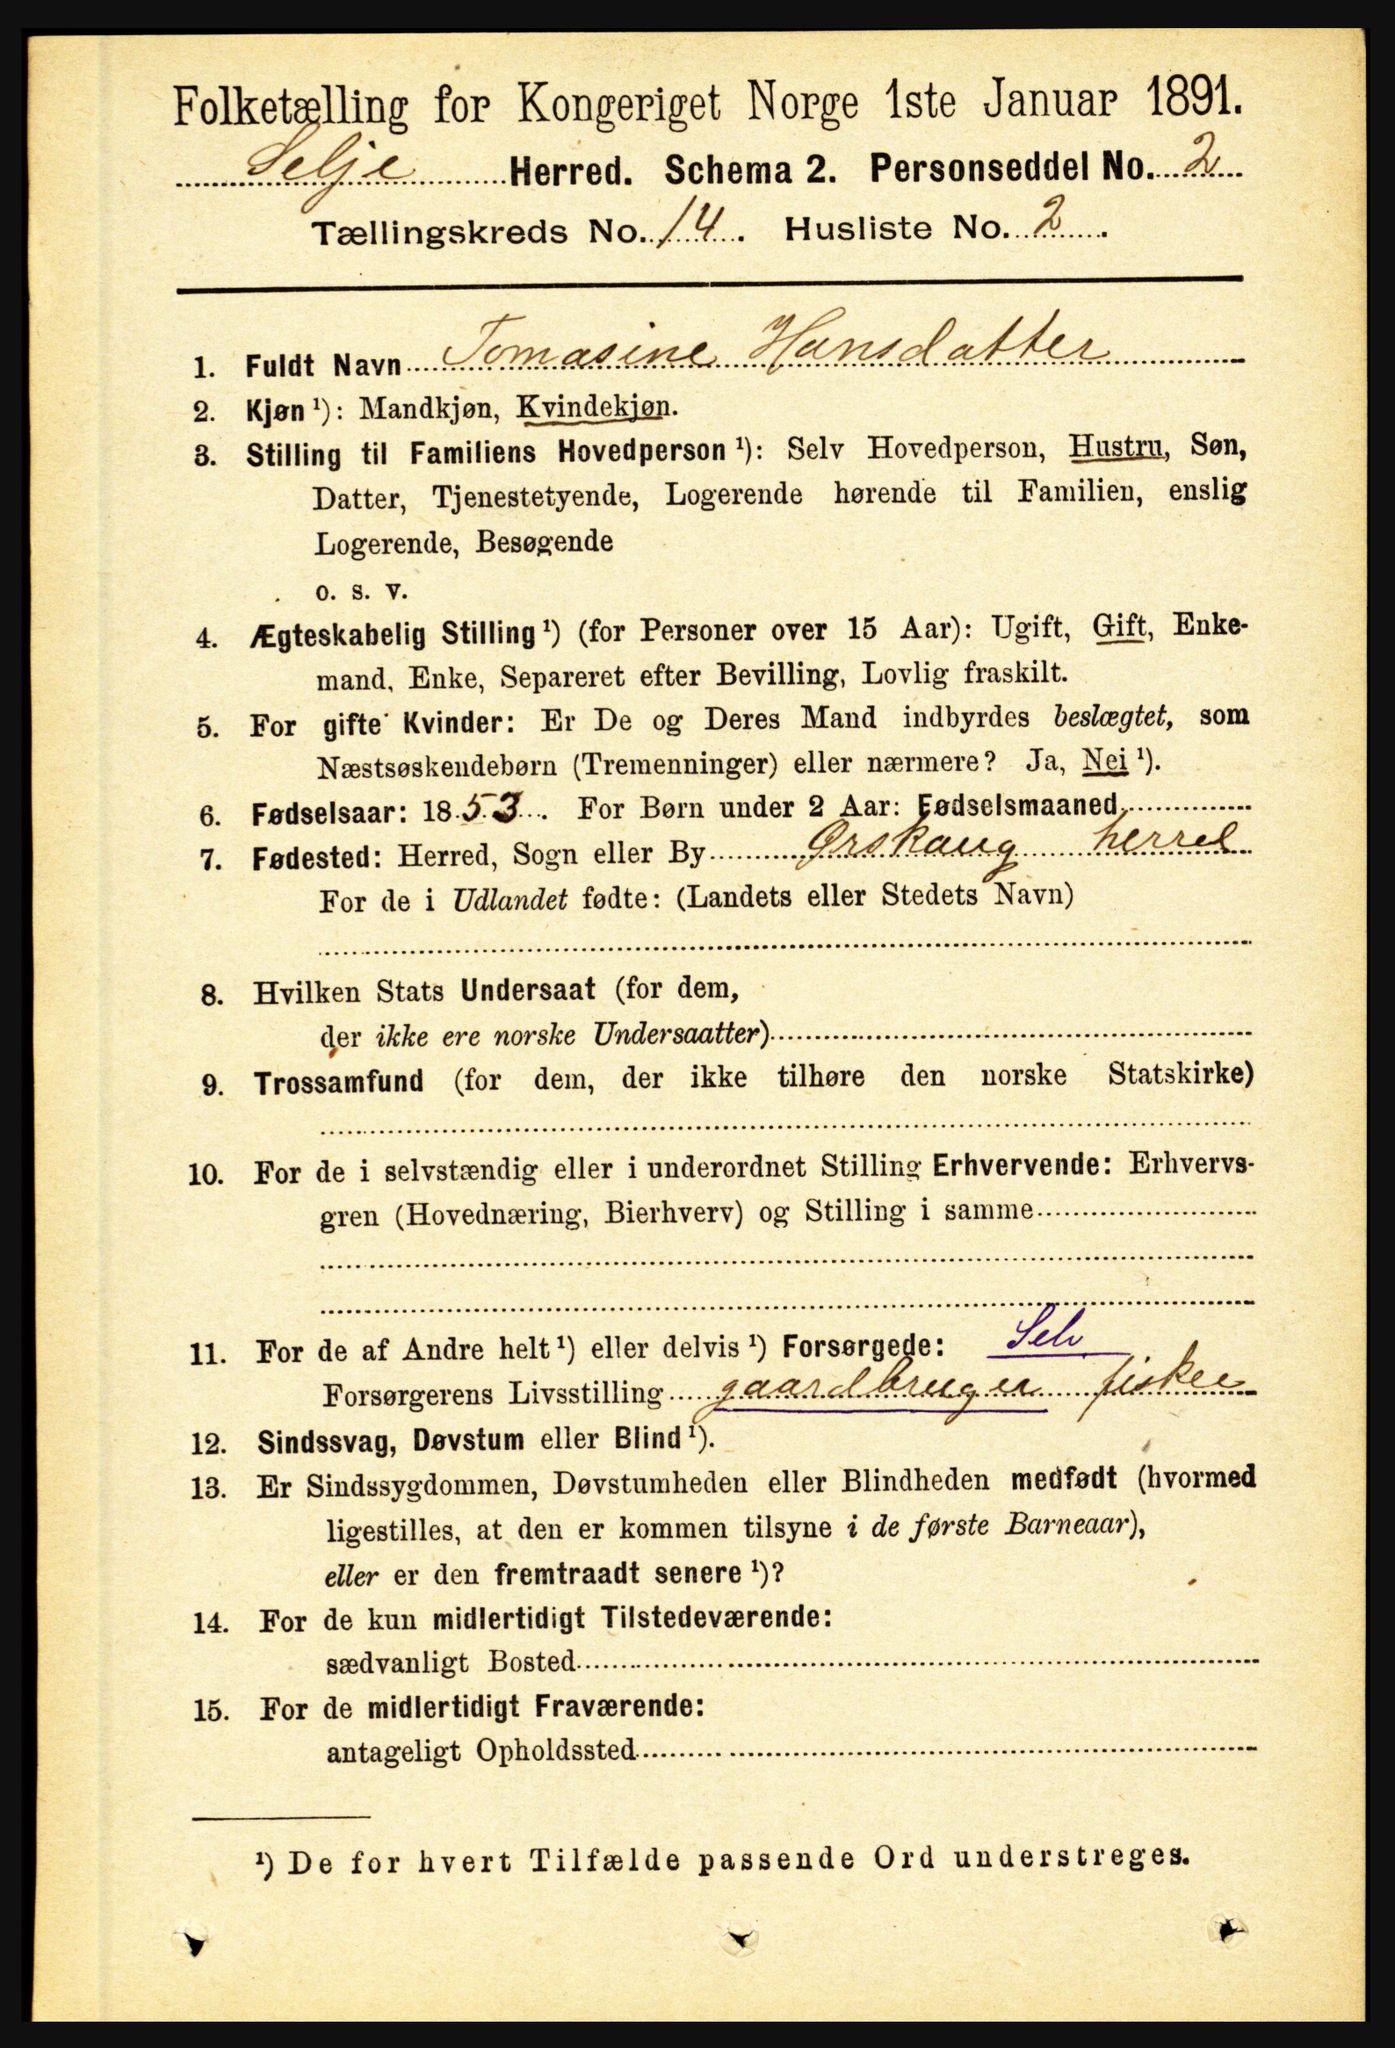 Folketælling for Kongeriget Norge 1ste Januar 1891.
Selje Herred. Schema 2. Personseddel No. 2
Tællingskreds No. 14. Husliste No. 2.
1. Fuldt Navn Tomasine Hansdatter
2. Kjøn ¹): Mandkjøn, Kvindekjøn.
3. Stilling til Familiens Hovedperson ¹): Selv Hovedperson, Hustru, Søn,
Datter, Tjenestetyende, Logerende hørende til Familien, enslig
Logerende, Besøgende
o. s. v.
4. Ægteskabelig Stilling ¹) (for Personer over 15 Aar): Ugift, Gift, Enke-
mand, Enke, Separeret efter Bevilling, Lovlig fraskilt.
5. For gifte Kvinder: Er De og Deres Mand indbyrdes beslægtet, som
Næstsøskendebørn (Tremenninger) eller nærmere? Ja, Nei ¹).
6. Fødselsaar: 1853. For Børn under 2 Aar: Fødselsmaaned
7. Fødested: Herred, Sogn eller By Ørskaug herred
For de i Udlandet fødte: (Landets eller Stedets Navn)
8. Hvilken Stats Undersaat (for dem,
der ikke ere norske Undersaatter)
9. Trossamfund (for dem, der ikke tilhøre den norske Statskirke)
10. For de i selvstændig eller i underordnet Stilling Erhvervende: Erhvervs-
gren (Hovednæring, Bierhverv) og Stilling i samme
11. For de af Andre helt ¹) eller delvis ¹) Forsørgede: Selv
Forsørgerens Livsstilling gaardbruger fisker
12. Sindssvag, Døvstum eller Blind ¹).
13. Er Sindssygdommen, Døvstumheden eller Blindheden medfødt (hvormed
ligestilles, at den er kommen tilsyne i de første Barneaar),
eller er den fremtraadt senere ¹)?
14. For de kun midlertidigt Tilstedeværende:
sædvanligt Bosted
15. For de midlertidigt Fraværende:
antageligt Opholdssted
¹) De for hvert Tilfælde passende Ord understreges.